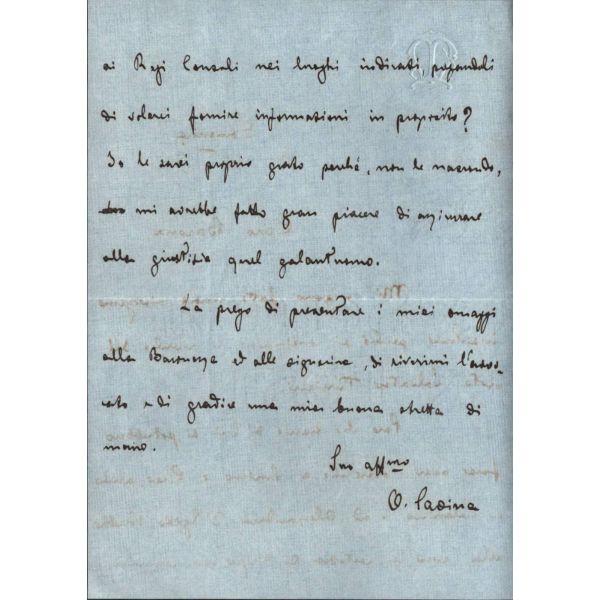 ai Regi Consoli nei luoghi indicati, pregandoli
di volerci fornire informazioni in proposito?
Io le sarei proprio grato perché, non le nascondo,
mi avrebbe fatto gran piacere di assicurare
alla giustizia quel galantuomo.
La prego di presentare i miei omaggi
alla Baronessa ed alle signorine, di riverirmi l'avvo-
cato e di gradire una mia buona stretta di
mano.
Suo affmo